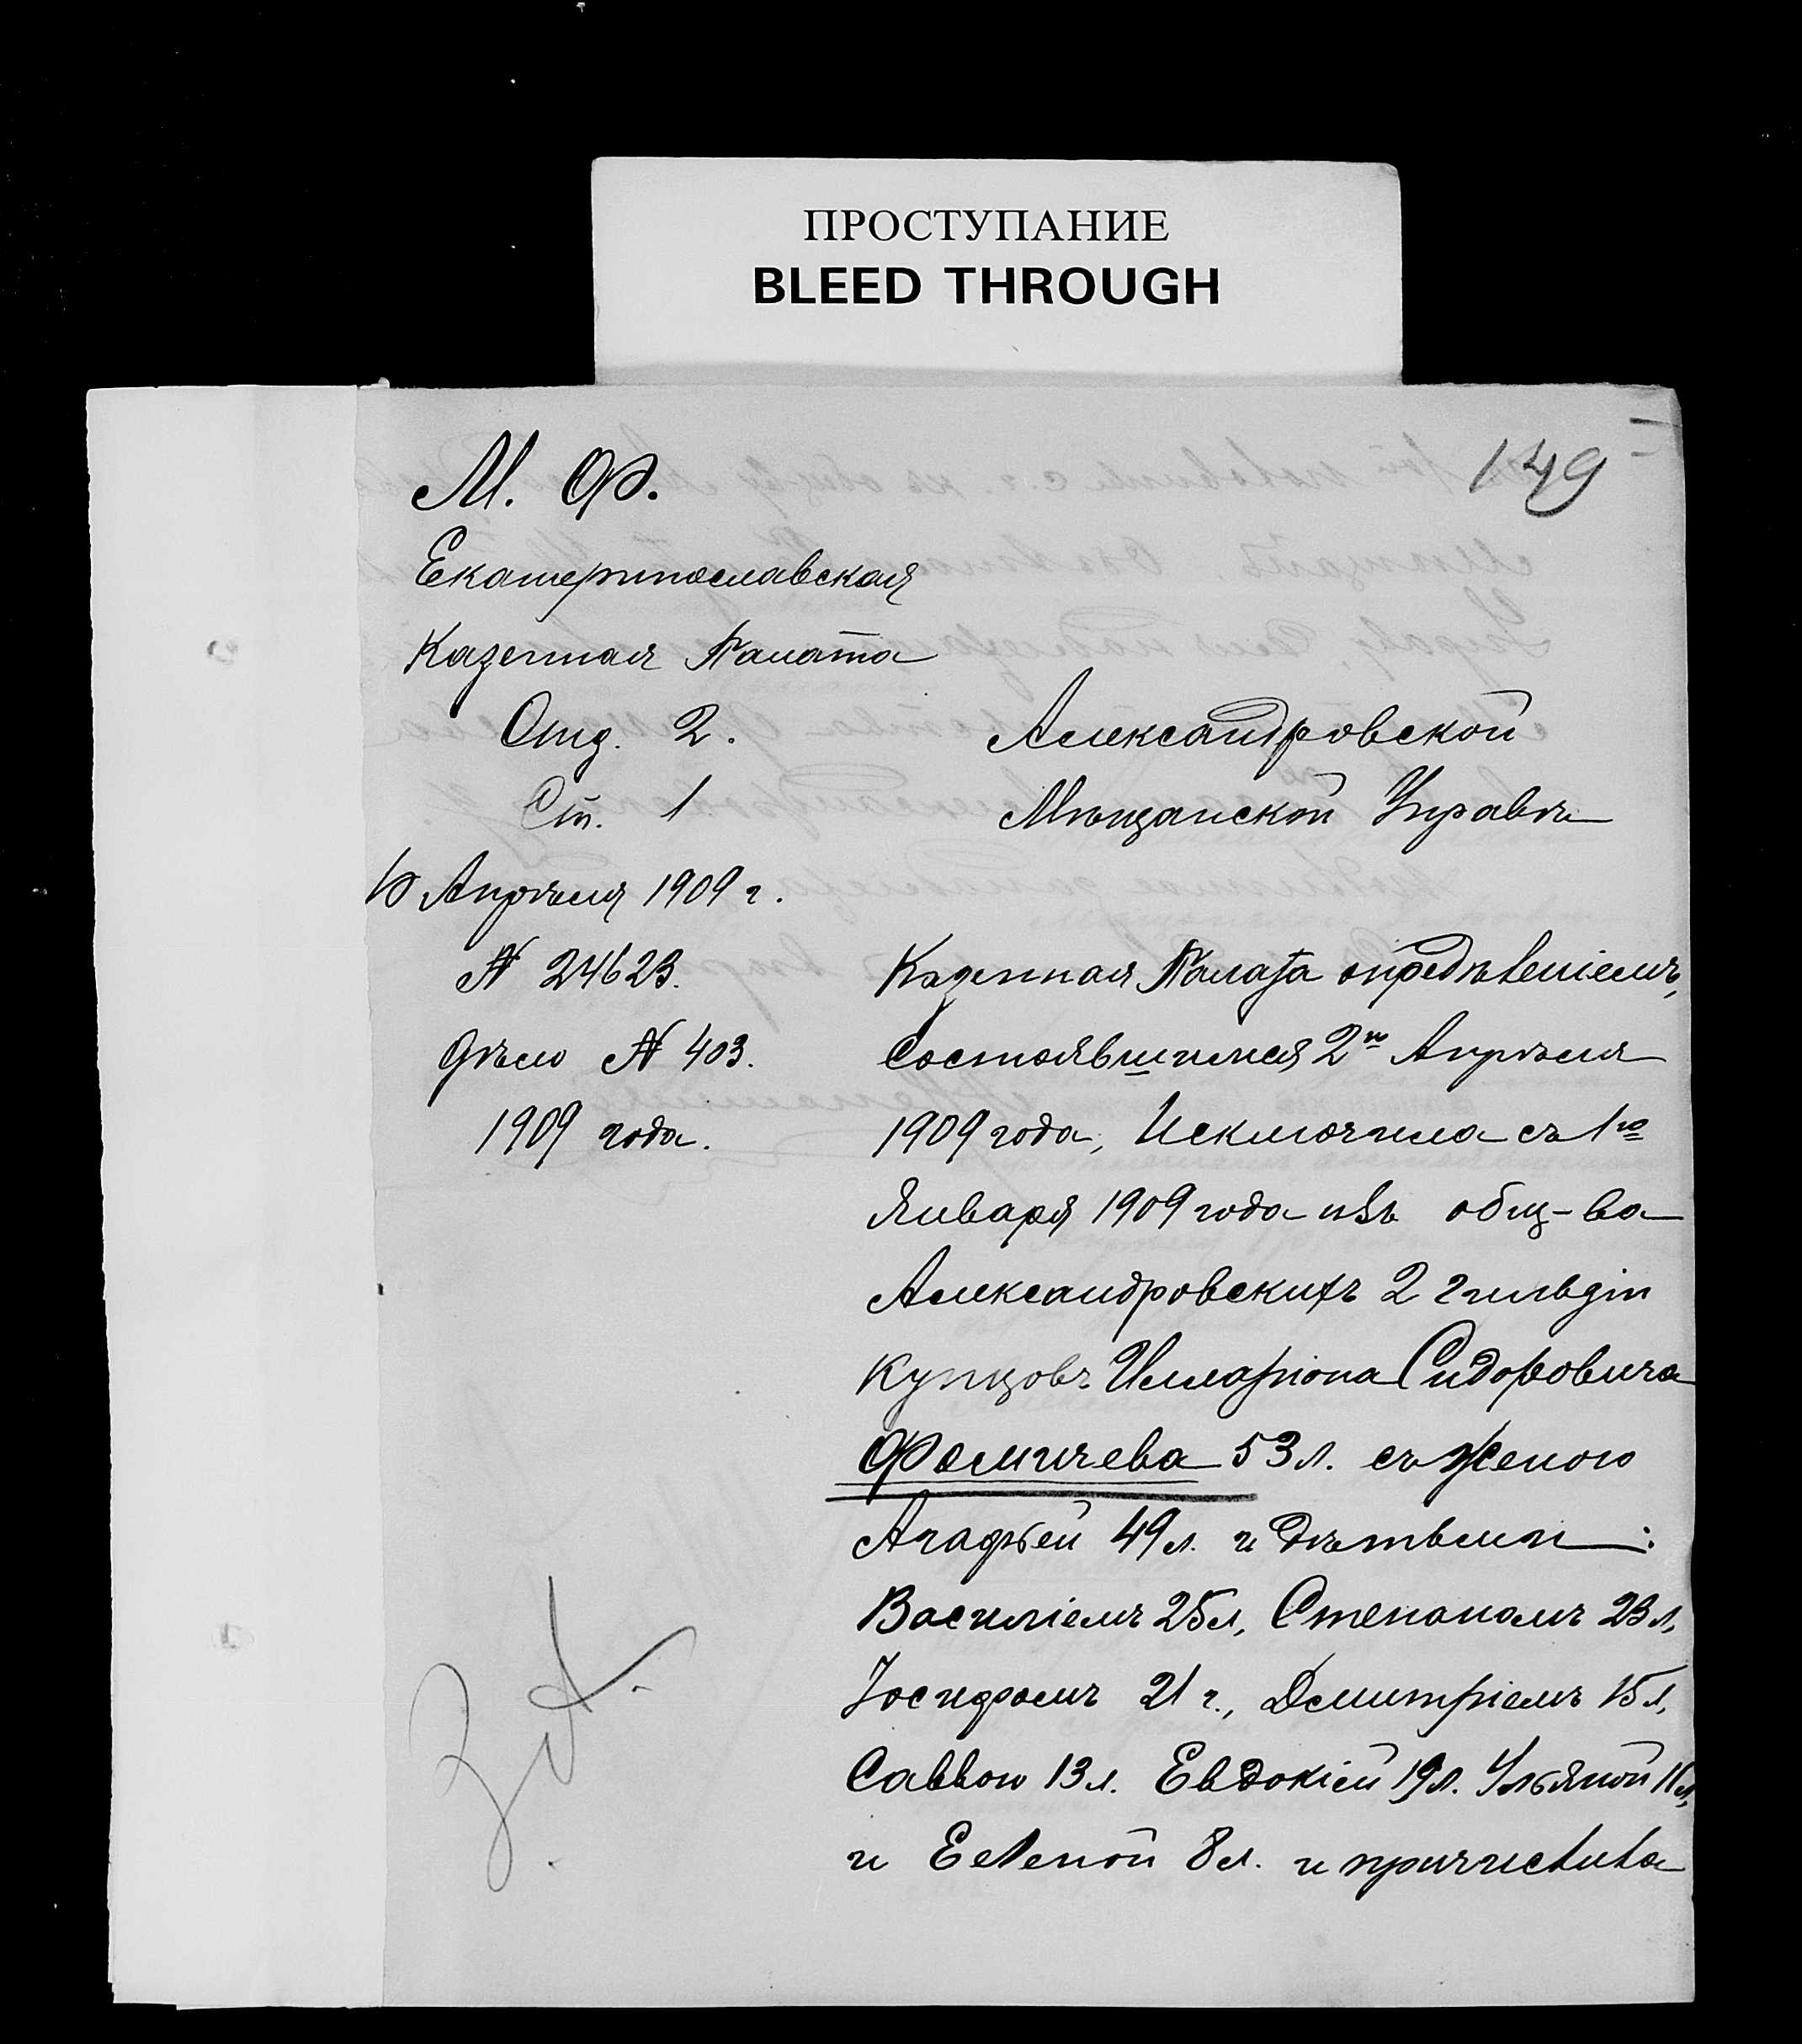 ПРОСТУПАНИЕ
BLEED THROUGH
149
М. Ф.
Екатеринославская
Казенная Палата
Отд. 2.
Ст. 1
Апрѣля 1909 г.
№ 24623.
Дѣло № 403.
1909 года.
Александровской
Мѣщанской Управѣ
Казенная Палата опредѣленіемъ,
состоявшимся 2го Апрѣля
1909 года, исключила съ 1го
Января 1909 года изъ общ-ва
Александровскихъ 2 гильдіи
купцовъ Илларіона Сидоровича
Фомичева 53 л. съ женою
Агафьей 49 л. и дѣтьми:
Василіемъ 25 л, Степаномъ 23 л,
Іосифомъ 21 г., Дмитріемъ 15 л,
Саввою 13 л. Евдокіей 19 л. Ульяной 11 л,
и Еленой 8 л. и причислила